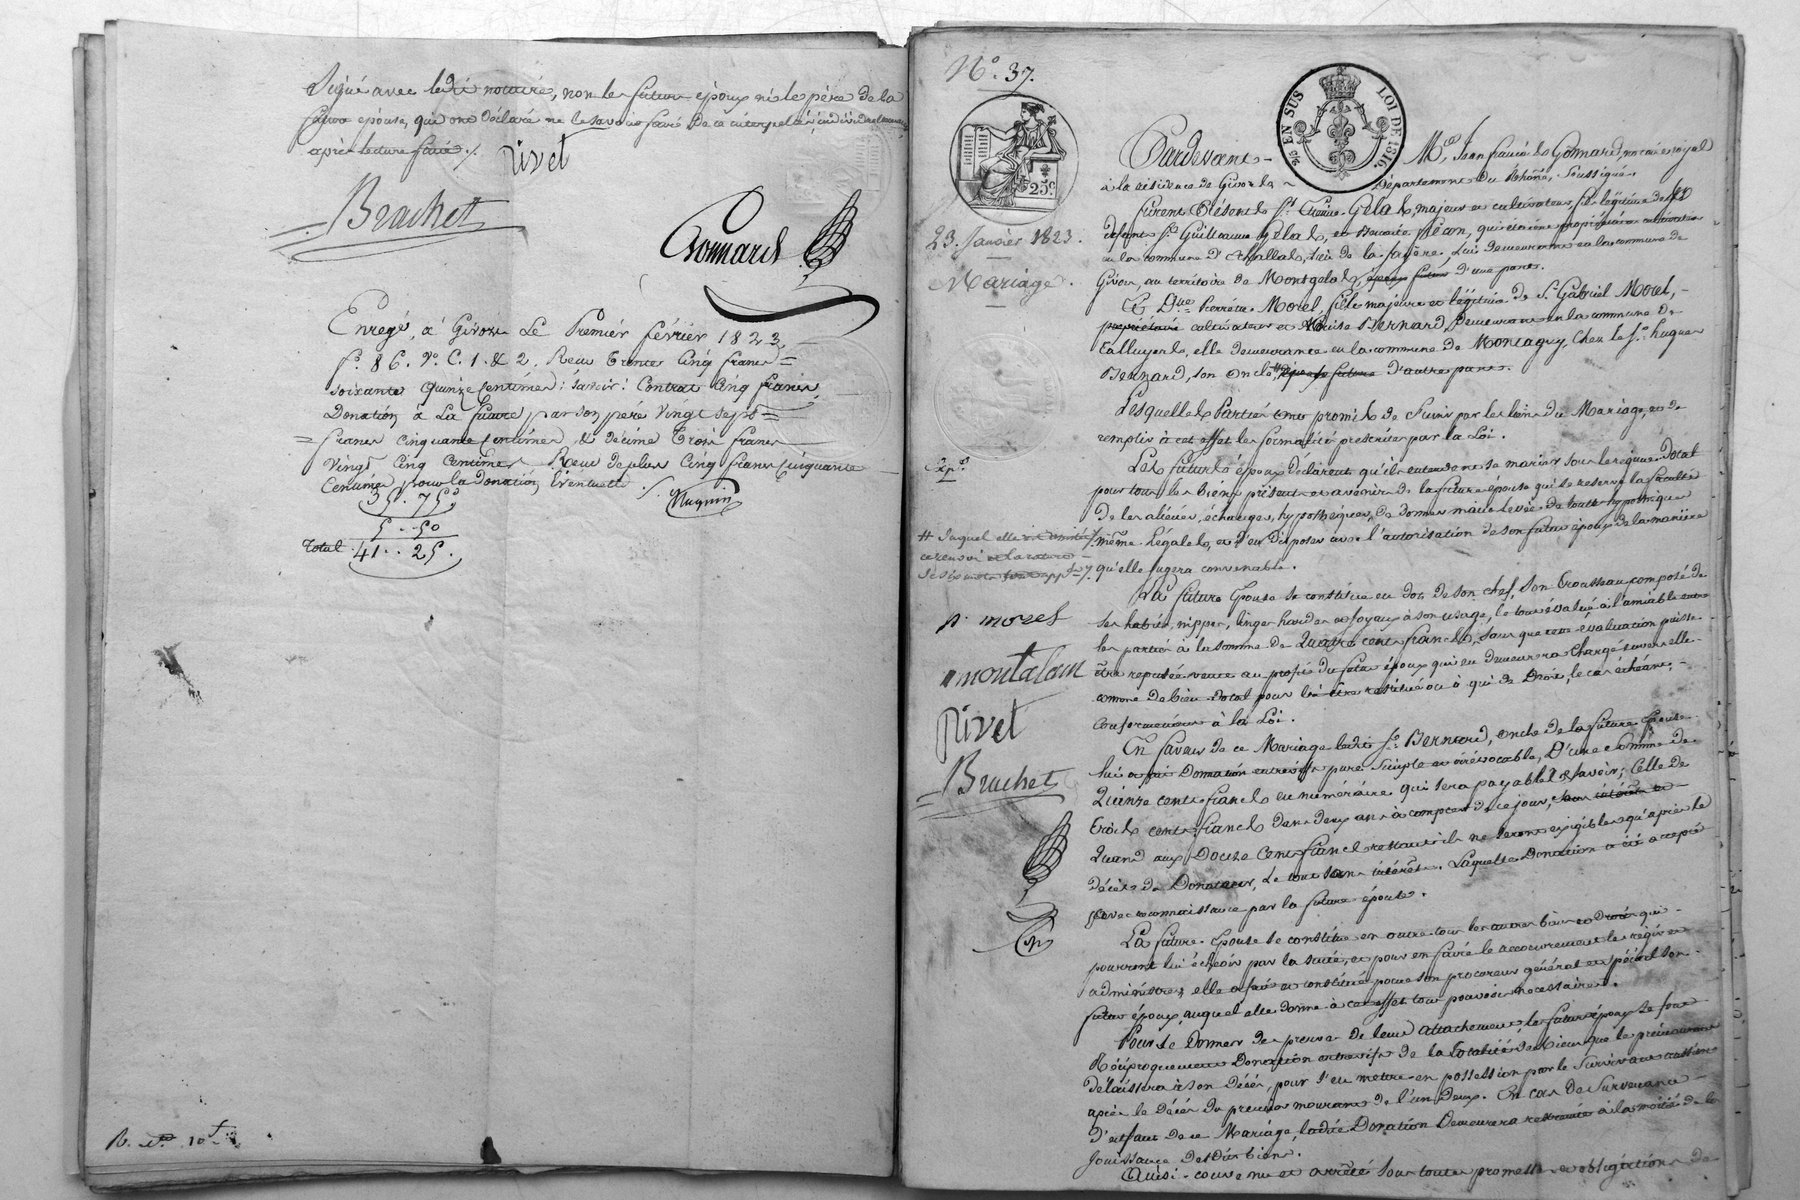 Signé avec ledit notaire, non le futur époux ni le père de la
future épouse, qui ont déclaré ne le savoir faire de ce interpellés individuellement
après lecture faite ./.
Rivet
Brachet
Gonnard
Enregé. à Givors Le Premier février 1823,
fo. 86. Vo. C. 1. & 2. Reçu Trente Cinq francs
soixante Quinze centimes: savoir: Contrat Cinq francs
Donation à La future par son père Vingt sept
francs cinquante centimes, & décime Trois francs
Vingt Cinq Centimes. Reçu de plus Cinq francs Cinquante
Centimes pour la donation Eventuelle
35. 75
5..50
Total 41..25.
No. 37.
EN SUS
LOI DE 1816.
25c.
23. Janvier 1823.
Mariage.
Pardevant Me. Jean françois Gonnard, notaire royal
à la résidence de Givors Département du Rhône, soussigné.
furent Présents Sr. Gelas, majeur et cultivateur, fils légitime de
défunt Sr. Guillaume Gelas, et Pécon, qui étaient propriétaires cultivateurs
en la commune d'Echallas, lieu de la fayère, lui demeurant en la commune de
Givors, au territoire de Montgelas, époux futur d'une part.
Et Dlle. Pierrette Morel, fille majeure et légitime de Sr. Gabriel Morel,
propriétaire cultivateur et Bernard, demeurant en la commune de
elle demeurante en la commune de Montagny, chez le Sr. hugues
Bernard, son oncle # épouse future d'autre part.
Lesquelles Parties ont promis de s'unir par les liens du Mariage, et de
remplir à cet effet les formalités prescrites par la Loi.
Les futurs époux déclarent qu'ils entendent se marier sous le régime Dotal
pour tous les biens présents et avenir de la future épouse qui se réserve la faculté
de les aliéner, échanger, hypothéquer, de donner main levée de toute hypothèque
même Légale, et d'en disposer avec l'autorisation de son futur époux de la manière
qu'elle jugera convenable.
Expé.
# Duquel elle
La future Epouse se constitue en dot de son chef, son Trousseau composé de
ses habits, nippes, linges hardes et joyaux à son usage, le tout évalué à l'amiable entre
les parties à la somme de Quatre cents francs, sans que cette évaluation puisse
être reputée vente au profit du futur époux qui en demeurera chargé envers elle
comme de bien dotal pour lui être restitué ou à qui de Droit, le cas échéant,
conformément à la Loi.
p. morel
montalan
Rivet
Brachet
En faveur de ce Mariage ledit Sr. Bernard, oncle de la future Epouse
lui a fait Donation entrevifs pure simple et irrévocable, D'une somme de
Quinze cents francs en numéraire qui sera payable savoir; Celle de
Trois cents francs dans deux ans à compter de ce jour, sans intérêts et
Quant aux Douze Cents francs restants ils ne seront exigibles qu'après le
décès du Donateur, Le tout sans intérêts. Laquelle Donation a été acceptée
avec reconnaissance par la future épouse.
La future Epouse se constitue en outre tous les autres biens et Droits qui
pourront lui échoir par la suite, et pour en faire le recouvrement les régir et
administrer, elle a fait et constitué pour son procureur général et spécial son
futur époux auquel elle donne à cet effet tous pouvoirs nécessaires.
Pour se Donner des preuves de leur attachement les futurs époux se font
Réciproquement Donation entrevifs de la Totalité des biens que le prémourant
délaissera à son décès, pour s'en mettre en possession par le Survivant aussitôt
après le décès du premier mourant de l'un Deux. En cas de Survenance
d'enfants de ce Mariage, ladite Donation Demeurera restrainte à la moitié de la
Jouissance desdits biens.
Ainsi convenu et arrêté sous toutes promesses et obligations de